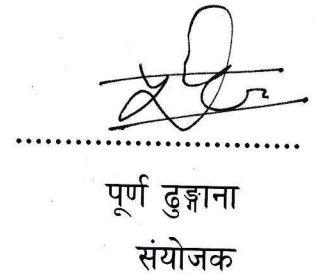 पूर्ण ढुङ्गाना
संयोजक